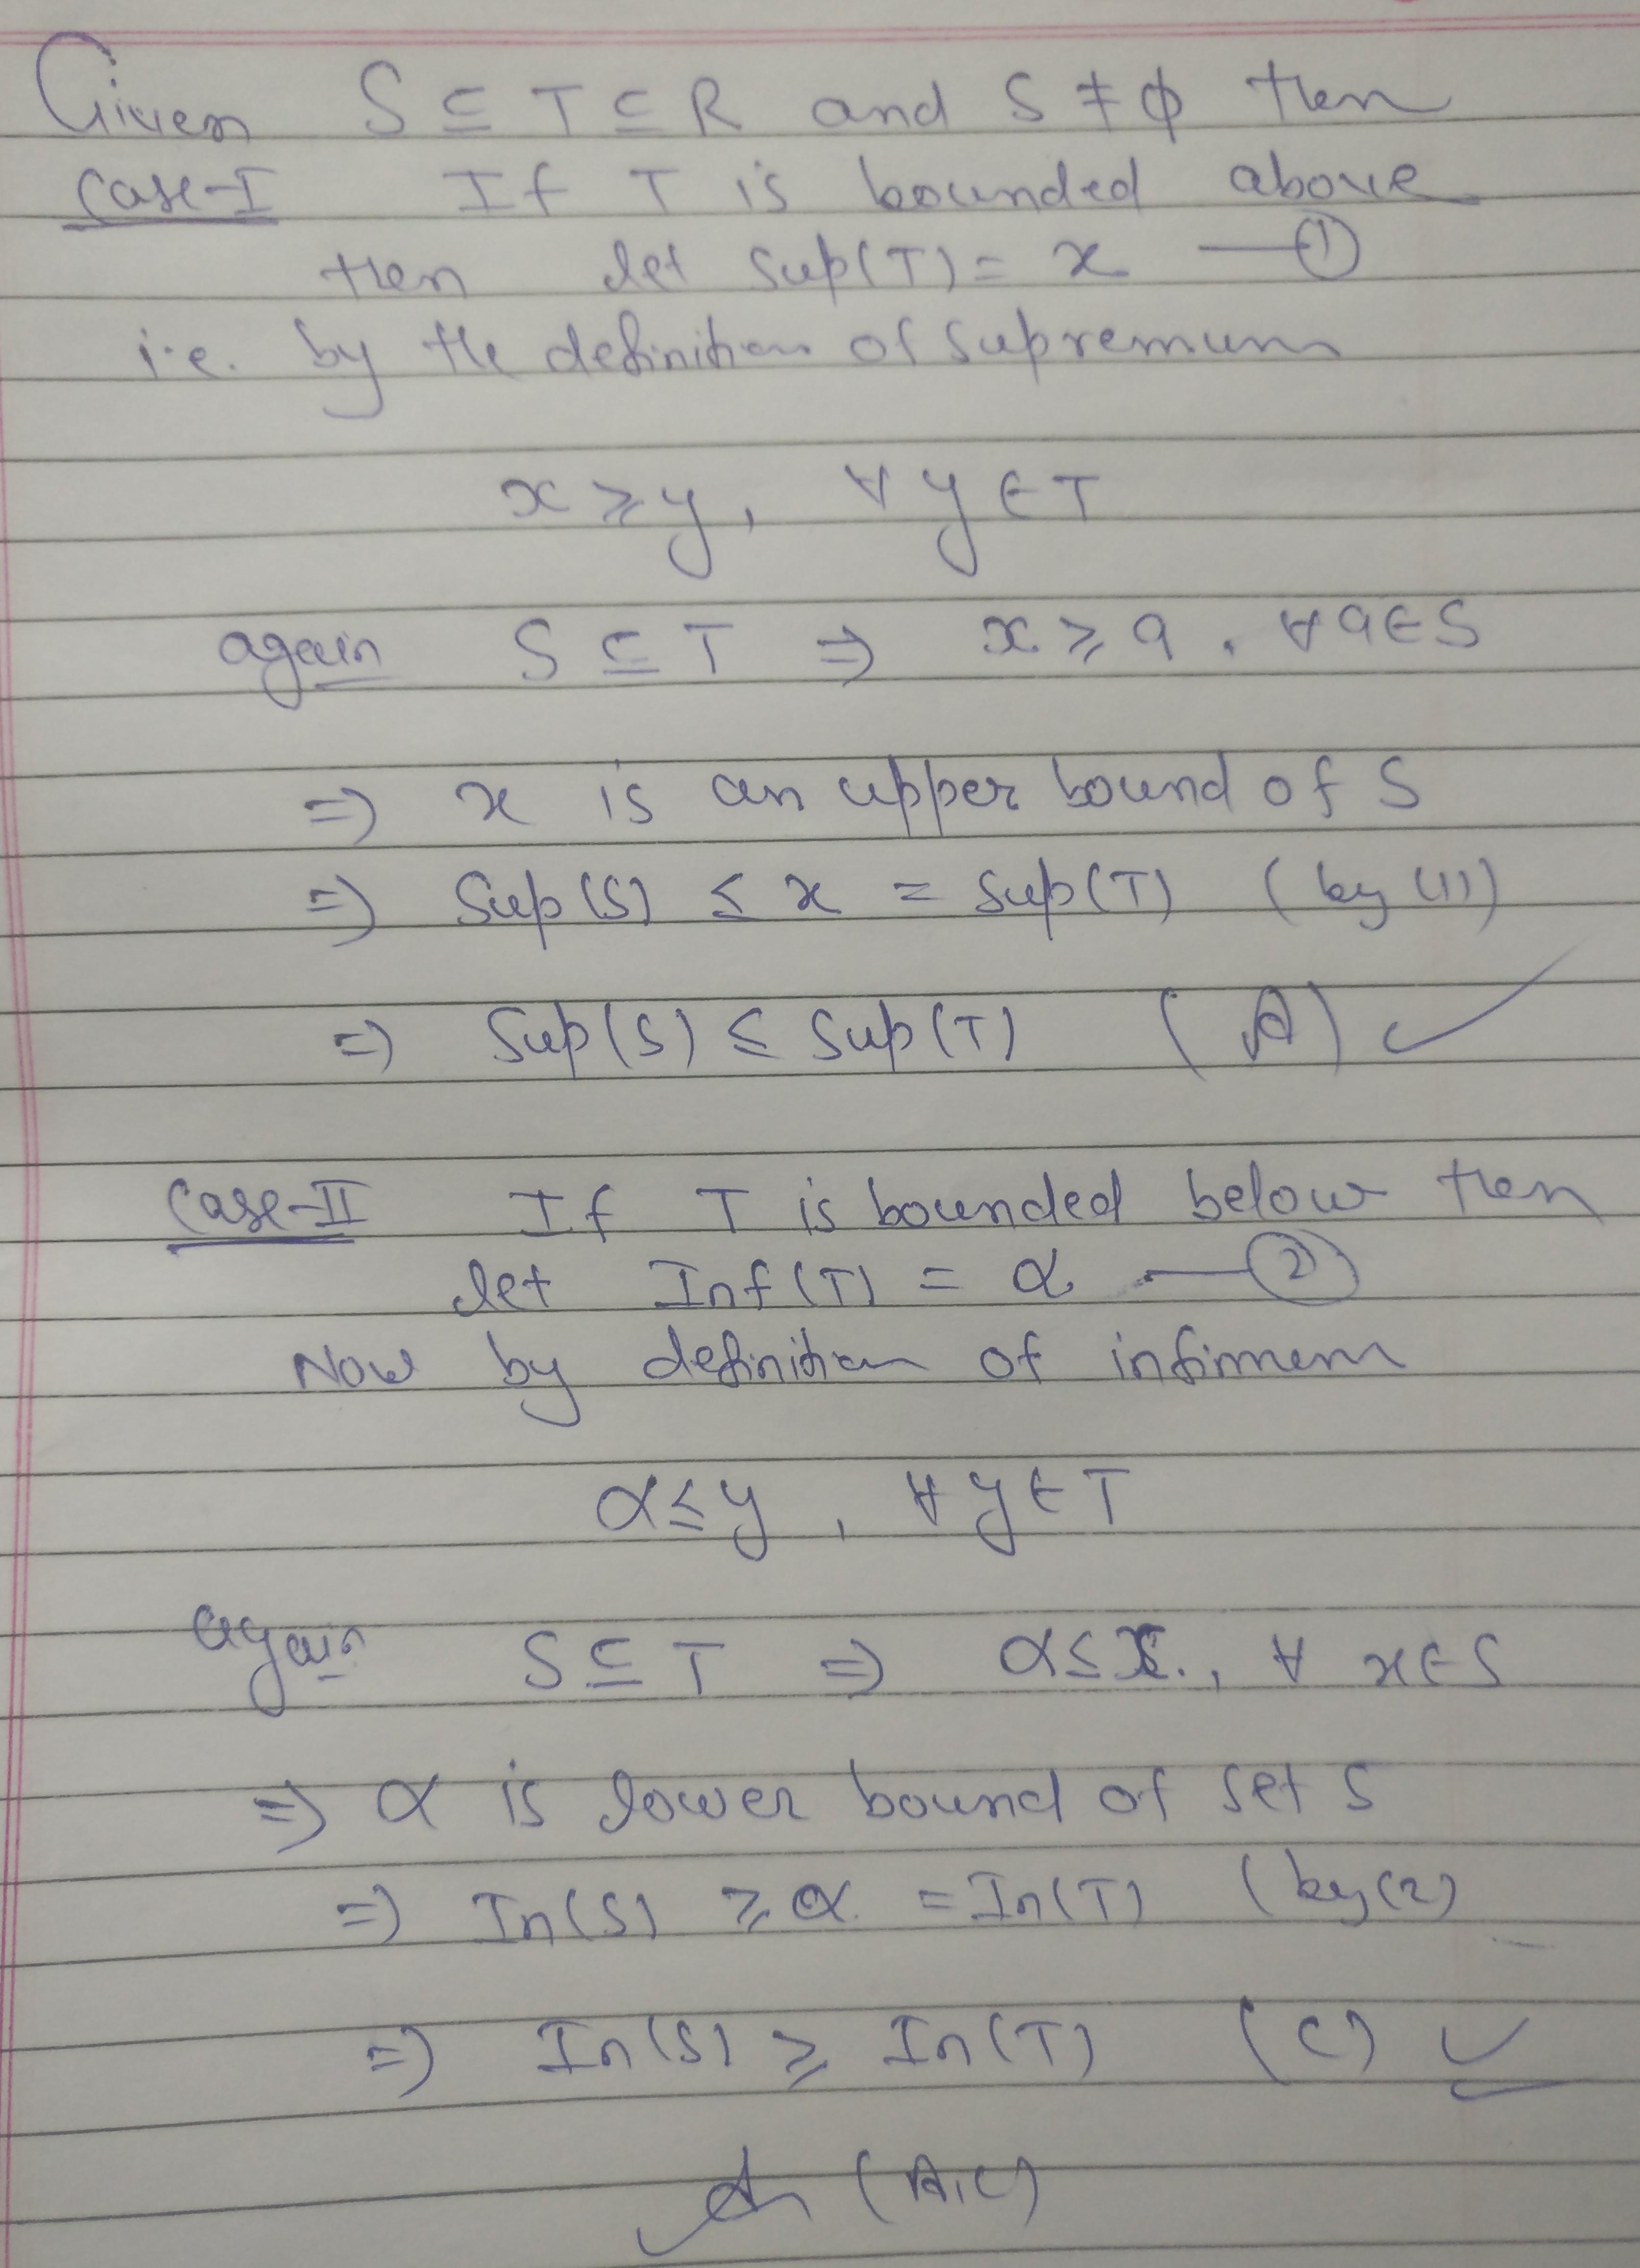 Given S ⊆ T ⊆ R and S ≠ ϕ then
Case-I If T is bounded above
then let Sup(T) = x —①
i.e. by the definition of Supremum
x ≥ y, ∀ y ∈ T
again S ⊆ T ⇒ x ≥ a, ∀ a ∈ S
⇒ x is an upper bound of S
⇒ Sup(S) ≤ x = Sup(T) (by (1))
⇒ Sup(S) ≤ Sup(T) (A) ✓
Case-II If T is bounded below then
let Inf(T) = α —②
Now by definition of infimum
α ≤ y, ∀ y ∈ T
again S ⊆ T ⇒ α ≤ x, ∀ x ∈ S
⇒ α is lower bound of set S
⇒ In(S) ≥ α = In(T) (by (2)
⇒ In(S) ≥ In(T) (C) ✓
(A,C)